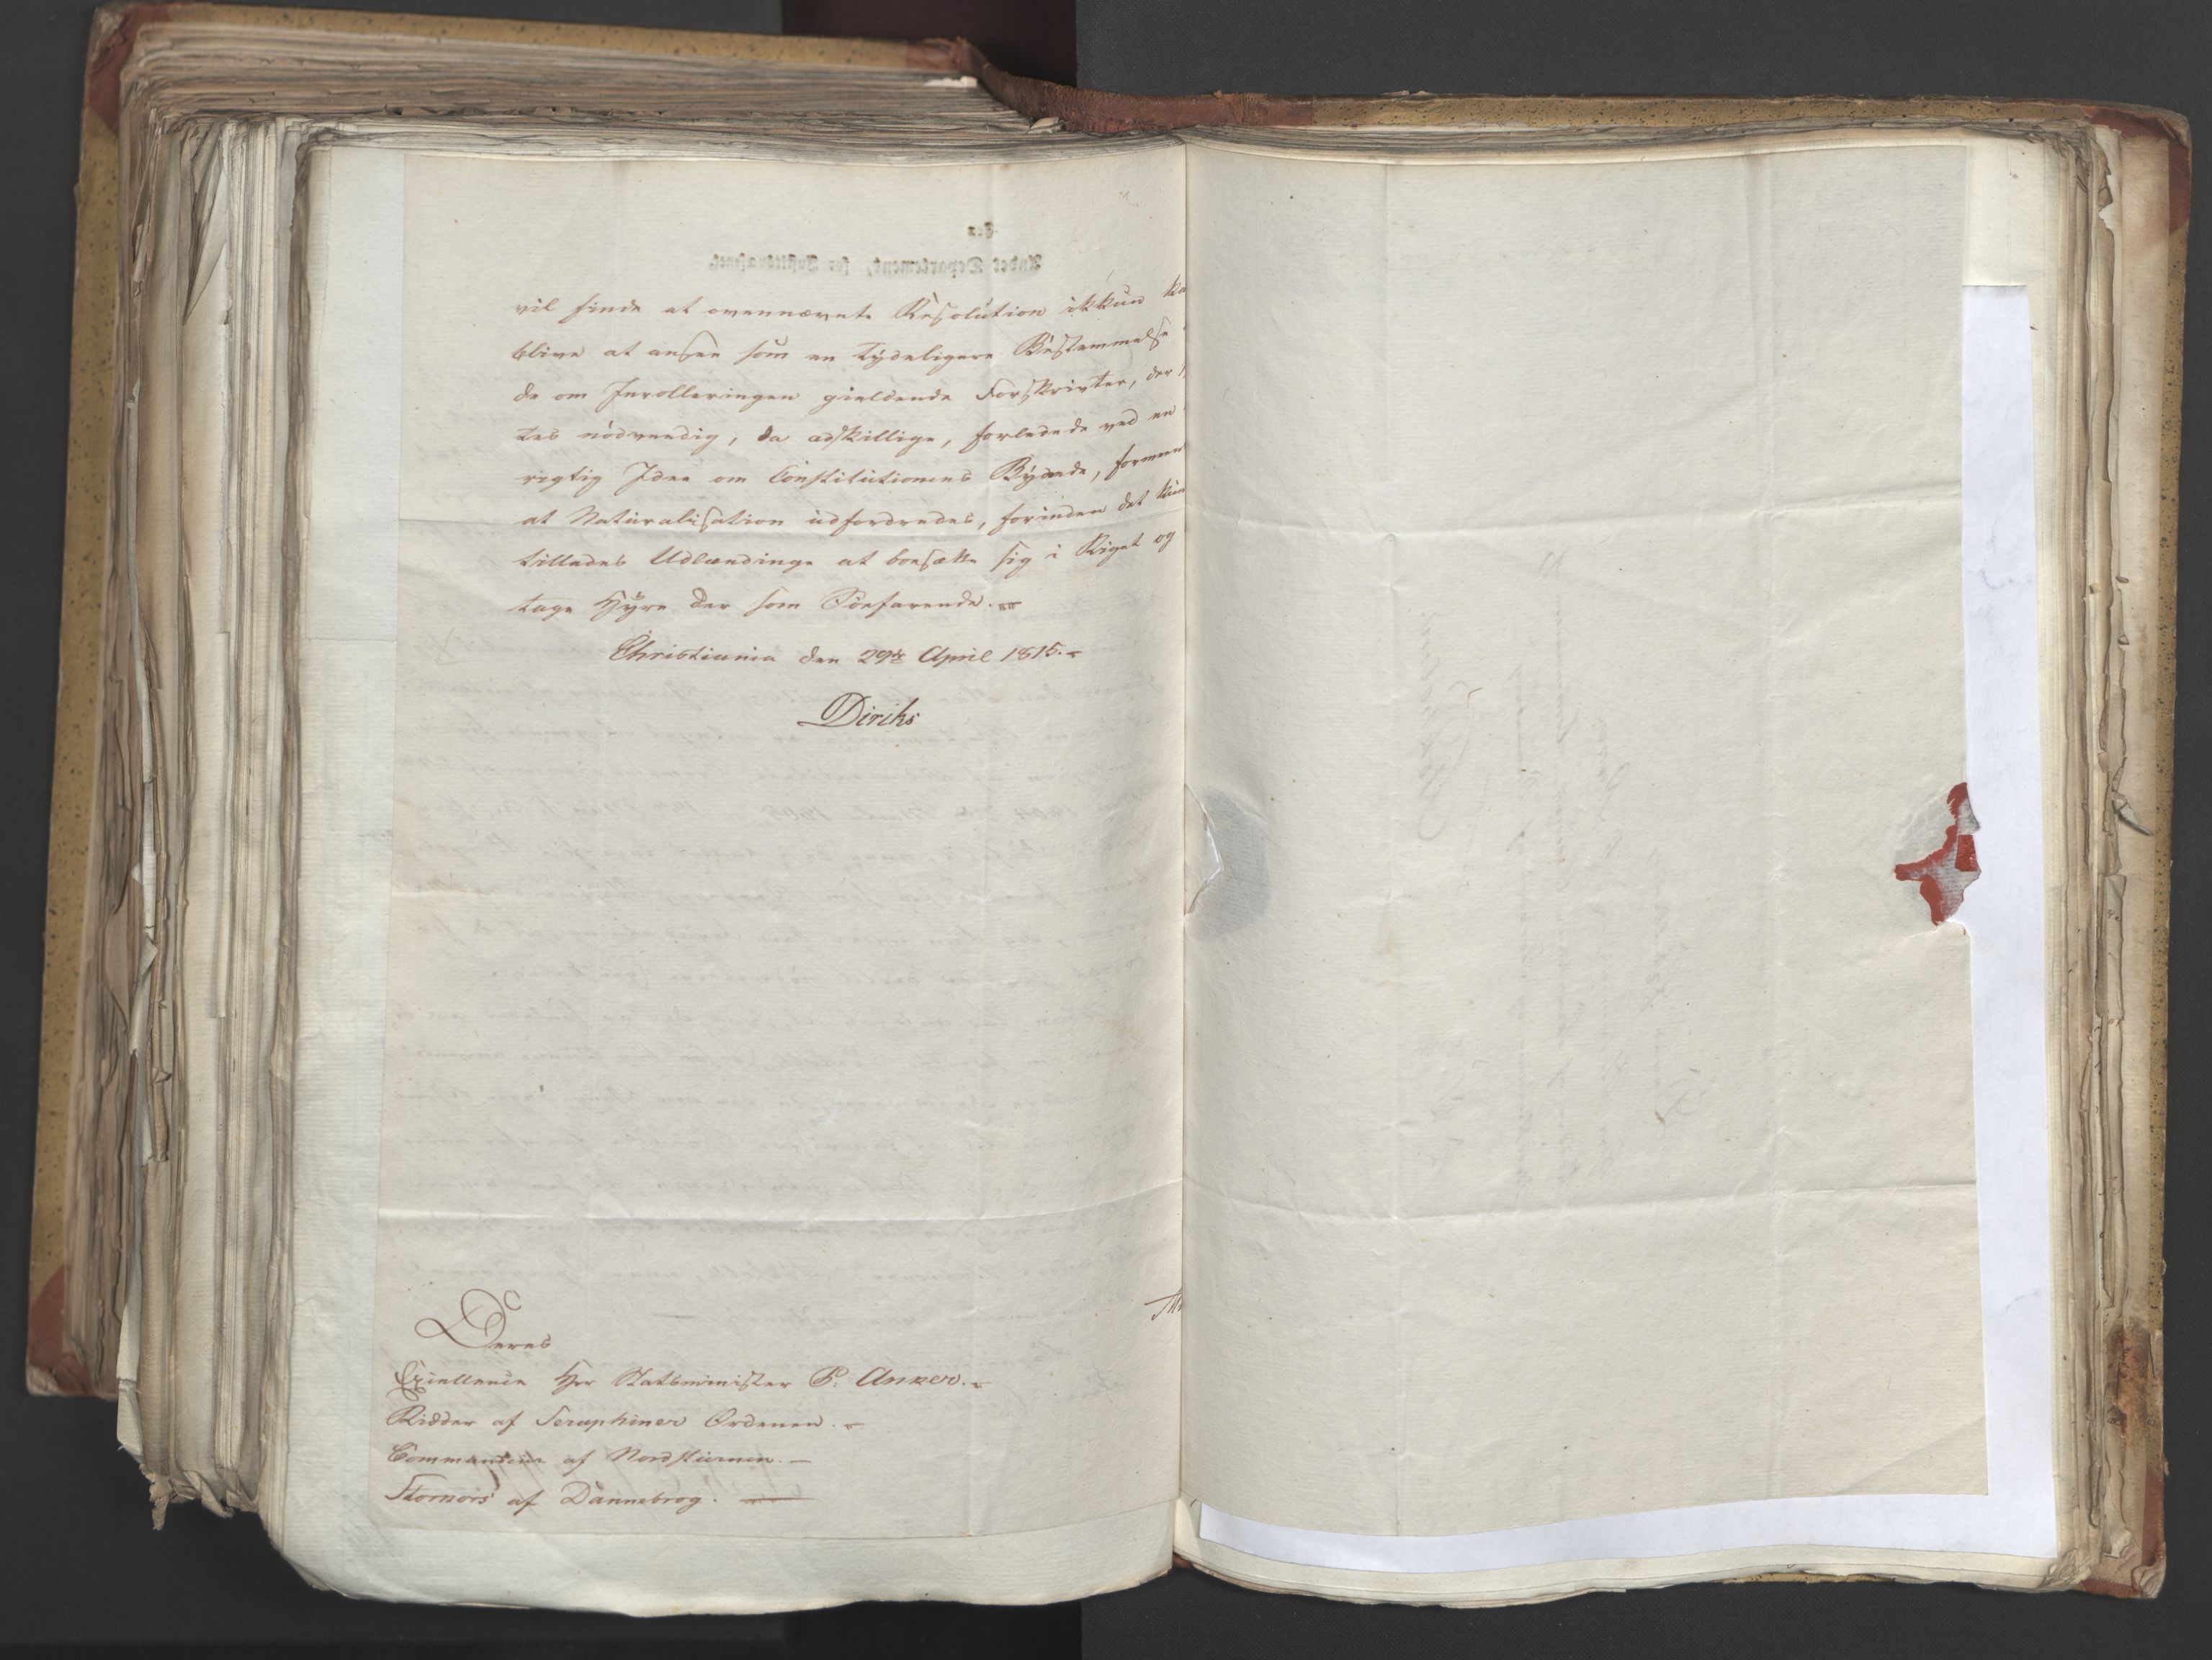 vil finde at ovennævnte Resolution ikkun ka
blive at ansee som en tydeligere Bestemmelse
de om Inrolleringen gieldende Forskrivter, der
tes nödvendig, da adskillige, forledede ved en
rigtig Idee om Constitutionens Bydende, formeen
at Naturalisation udfordredes, forinden det kun
tillades Udlændinge at bosætte sig i Riget og
tage Hyre der som Söefarende.
Christiania den 29de April 1815.
Diriks
Deres
Excellence Hr Statsminister P. Anker.
Ridder af Seraphiner Ordenen.
Commandeur af Nordstiernen.
Storkors af Dannebrog.